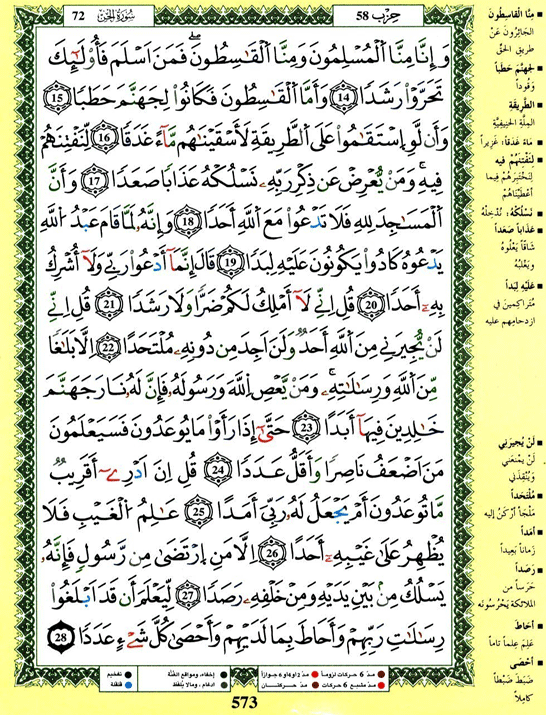 حِزْب 58
سُورَةُ الجِنّ 72
وَإِنَّا مِنَّا اَ۬لْمُسْلِمُونَ وَمِنَّا اَ۬لْقَٰسِطُونَۖ فَمَنَ اَسْلَمَ فَأُوْلَٰٓئِكَ
تَحَرَّوْاْ رَشَدا 14 وَأَمَّا اَ۬لْقَٰسِطُونَ فَكَانُواْ لِجَهَنَّمَ حَطَبا 15
وَأَن لَّوِ اِ۪سْتَقَٰمُواْ عَلَى اَ۬لطَّرِيقَةِ لَأَسْقَيْنَٰهُم مَّآءً غَدَقا 16 لِّنَفْتِنَهُمْ
فِيهِۖ وَمَنْ يُّعْرِضْ عَن ذِكْرِ رَبِّهِۦ نَسْلُكْهُ عَذَابا صَعَدا 17 وَأَنَّ
اَ۬لْمَسَٰجِدَ لِلهِ فَلَا تَدْعُواْ مَعَ اَ۬للَّهِ أَحَدا 18 وَإِنَّهُۥ لَمَّا قَامَ عَبْدُ اُ۬للَّهِ
يَدْعُوهُ كَادُواْ يَكُونُونَ عَلَيْهِ لِبَدا 19 قَالَ إِنَّمَآ أَدْعُواْ رَبِّے وَلَآ أُشْرِكُ
بِهِۦٓ أَحَدا 20 قُلِ اِنِّے لَآ أَمْلِكُ لَكُمْ ضَرّا وَلَا رَشَدا 21 قُلِ اِنِّے
لَنْ يُّجِيرَنِے مِنَ اَ۬للَّهِ أَحَد وَلَنَ اَجِدَ مِن دُونِهِۦ مُلْتَحَدا 22 اِلَّا بَلَٰغا
مِّنَ اَ۬للَّهِ وَرِسَٰلَٰتِهِۦۖ وَمَنْ يَّعْصِ اِ۬للَّهَ وَرَسُولَهُۥ فَإِنَّ لَهُۥ نَارَ جَهَنَّمَ
خَٰلِدِينَ فِيهَآ أَبَدا 23 حَتَّىٰٓ إِذَا رَأَوْاْ مَا يُوعَدُونَ فَسَيَعْلَمُونَ
مَنَ اَضْعَفُ نَاصِرا وَأَقَلُّ عَدَدا 24 قُلِ اِنَ اَدْرِےٓ أَقَرِيب
مَّا تُوعَدُونَ أَمْ يَجْعَلُ لَهُۥ رَبِّيَ أَمَدا 25 عَٰلِمُ اُ۬لْغَيْبِ فَلَا
يُظْهِرُ عَلَىٰ غَيْبِهِۦٓ أَحَدا 26 اِلَّا مَنِ اِ۪رْتَضَىٰ مِن رَّسُول فَإِنَّهُۥ
يَسْلُكُ مِنۢ بَيْنِ يَدَيْهِ وَمِنْ خَلْفِهِۦ رَصَدا 27 لِّيَعْلَمَ أَن قَدَ اَبْلَغُواْ
رِسَٰلَٰتِ رَبِّهِمْ وَأَحَاطَ بِمَا لَدَيْهِمْ وَأَحْصَىٰ كُلَّ شَےْءٍ عَدَدا 28
■ مِنَّا القَاسِطُون
الجَائِرُونَ عَنْ
طريقِ الحقّ
■ لِجهنَّمَ حَطَباً
وَقُوداً
■ الطَّرِيقَةِ
المِلَّةِ الحَنِيفِيَّةِ
■ مَاءً غَدَقاً: غَزِيراً
■ لِنَفْتِنَهُمْ فيه
لِنَخْتَبِرَهُمْ فِيما
أعْطَيْنَاهُمْ
■ نَسْلُكْهُ: نُدْخِلْهُ
■ عَذَاباً صَعَداً
شَاقّاً يَعْلُوهُ
ويَغْلِبُهُ
■ عَلَيْهِ لِبَداً
مُتَرَاكِمِينَ في
ازدحامِهم عليه
■ لَنْ يُجِيرَنِي
لَنْ يمْنَعَني
ويُنْقِذَني
■ مُلْتَحَداً
مَلْجَأً أرْكَنُ إليه
■ أمَداً
زَمَاناً بَعِيداً
■ رَصَداً
حَرَساً من
الملائكة يَحْرُسُونَه
■ أحَاطَ
عَلِمَ عِلْماً تاماً
■ أحْصَى
ضَبَطَ ضَبْطاً
كاملاً
مدّ 6 حركات لزوماً ● مدّ 2 أو 4 أو 6 جوازاً
مدّ مشبع 6 حركات ● مدّ حركتان
إخفاء، ومواقع الغُنَّة
إدغام، وما لا يُلفَظ
تفخيم
قلقلة
573